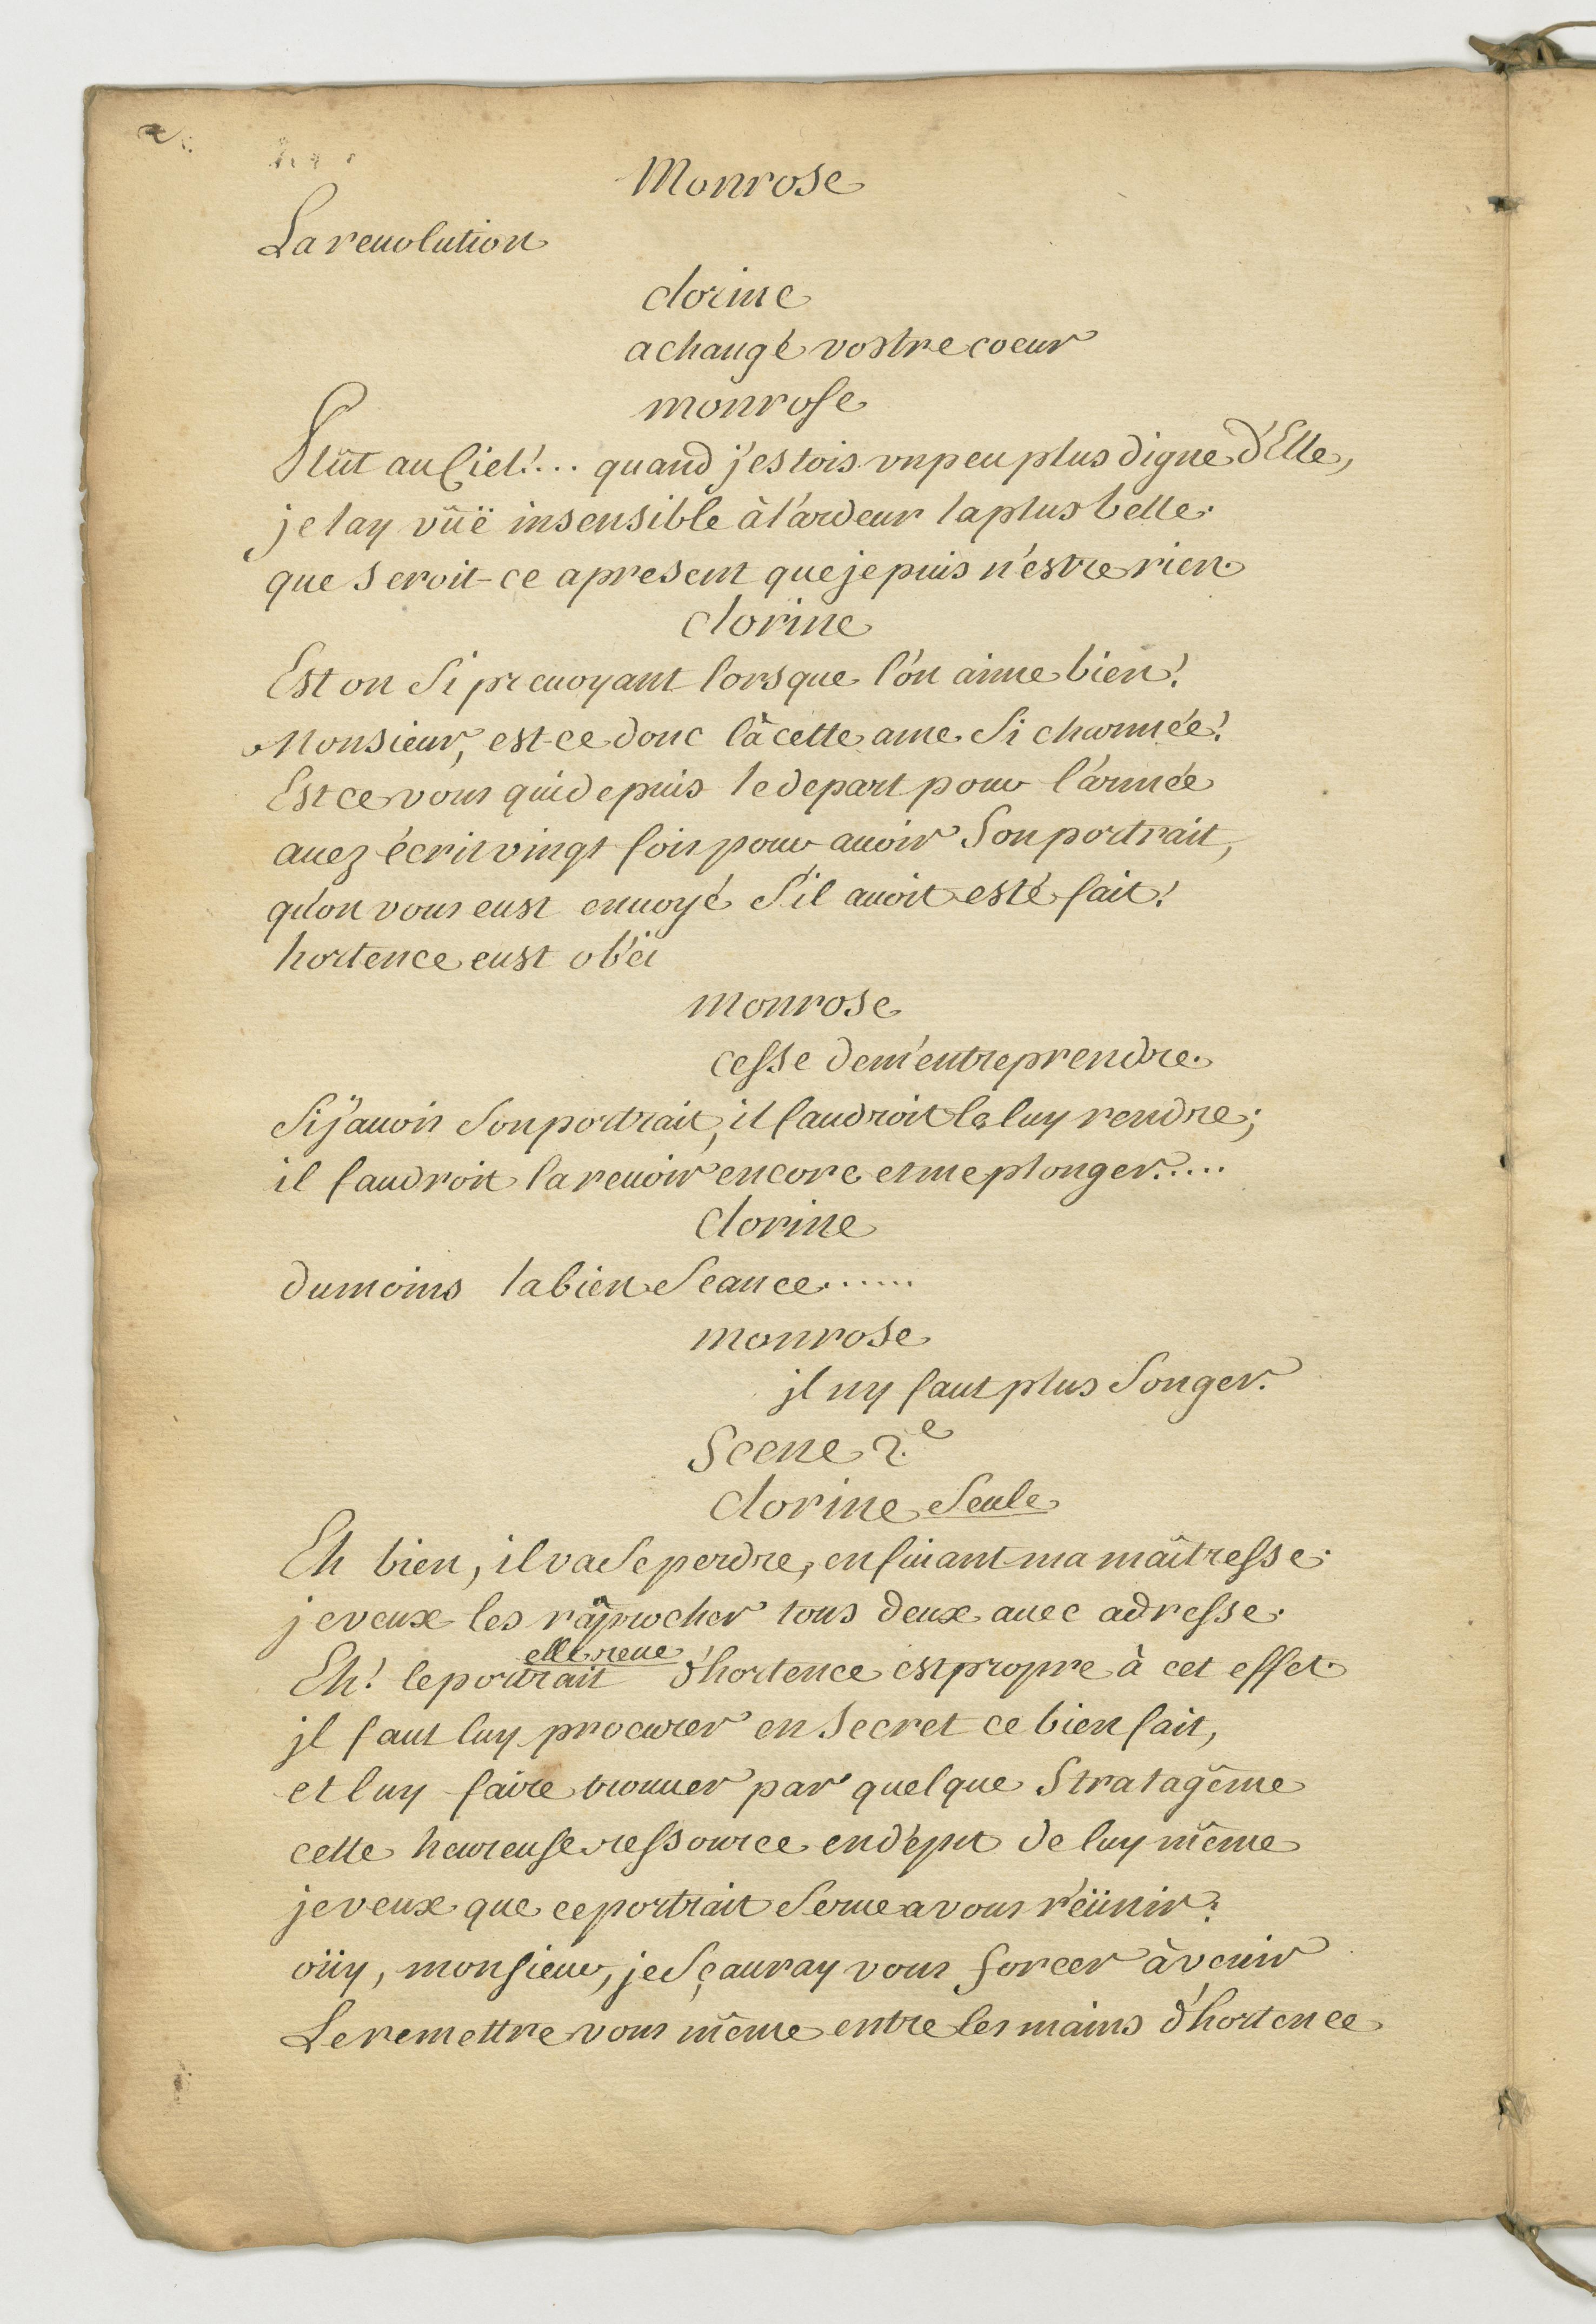 2.
Monrose
La reuolution
clorine
a changé vostre coeur
monrose
Plût au Ciel!... quand j'estois vn peu plus digne d'Elle,
je l'ay vûë insensible à l'ardeur la plus belle.
que seroit-ce apresent que je puis n'éstre rien.
clorine
Est on si preuoyant lorsque l'on aime bien?
Monsieur, est-ce donc là cette ame si charmée?
Est ce vous qui depuis le depart pour l'armée
auez écrit vingt fois pour auoir son portrait,
qu'on vous eust enuoyé s'il auoit esté fait?
hortence eust obéi
monrose
cesse de m'entreprendre.
si j'auois son portrait, il faudroit le luy rendre;
il faudroit la reuoir encore et me plonger....
clorine
du moins la bien seance......
monrose
jl n'y faut plus songer.
Scene 2.e
clorine seule
Eh bien, il va se perdre, en fuiant ma maîtresse.
je veux les râprocher tous deux auec adresse.
elle reue
Eh! le portrait d'hortence est propre à cet effet.
jl faut luy procurer en secret ce bien fait,
et luy faire trouuer par quelque stratagême
cette heureuse ressource en dépit de luy même
je veux que ce portrait serue a vous réünir.
oüy, monsieur, je sçauray vous forcer à venir
Le remettre vous même entre les mains d'hortence